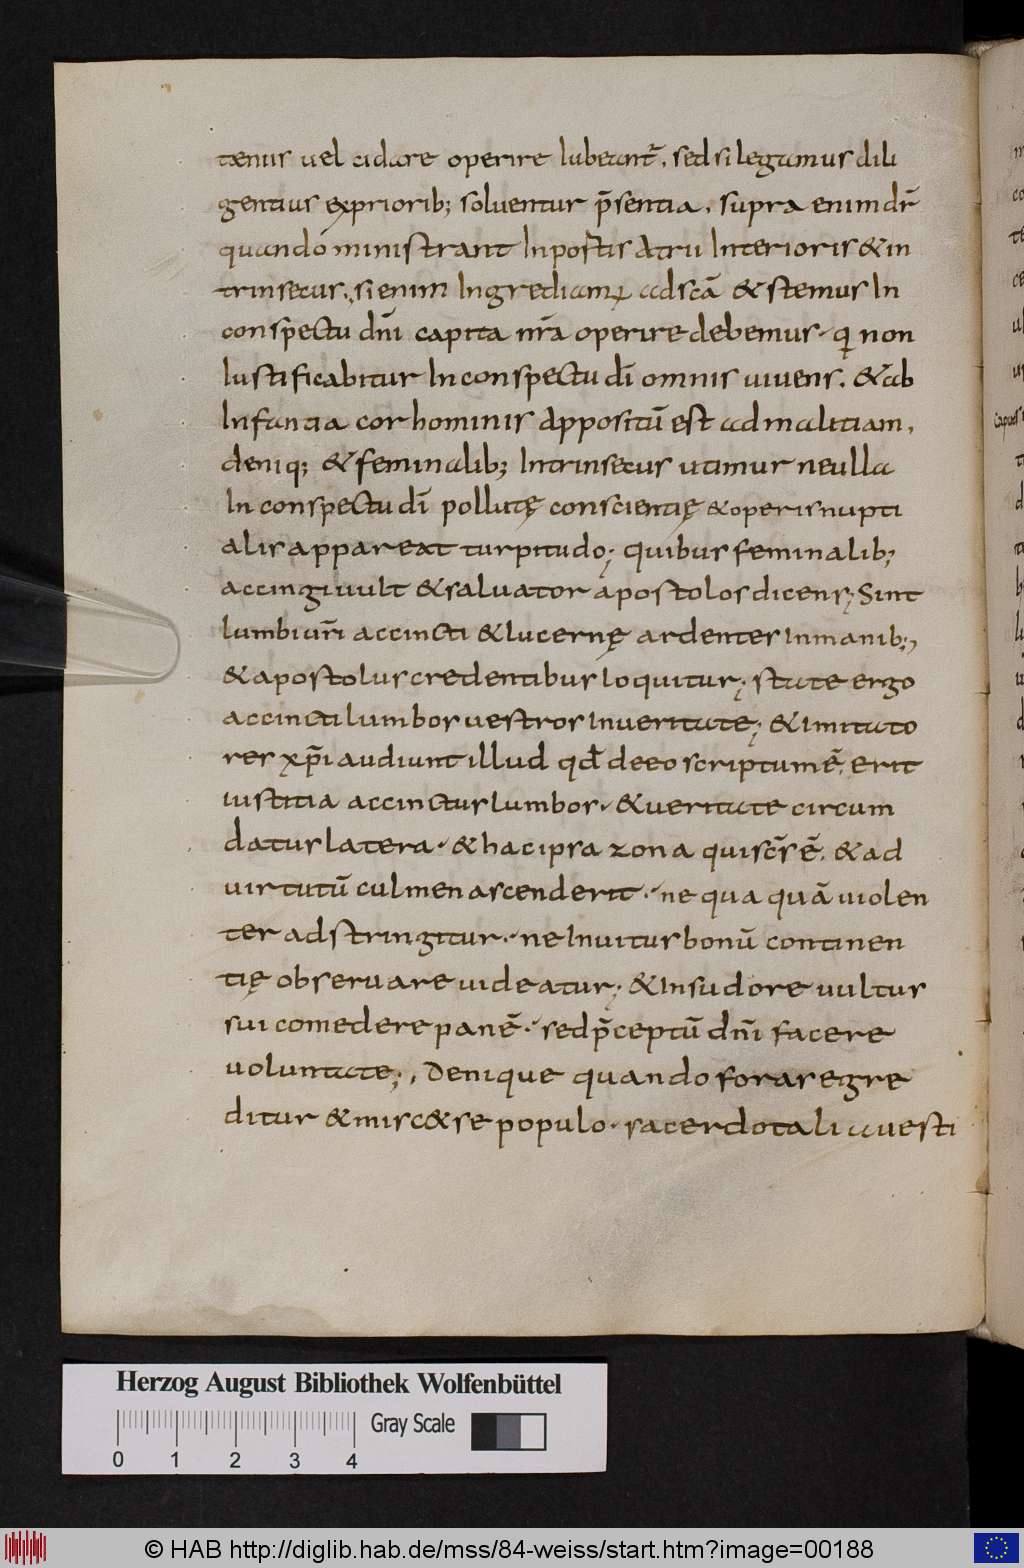 tenus uel cidare operire lubeantr̄. sed si legamus dili
gentius exprioribꝫ soluentur p̄sentia. supra enim dr̄
quando ministrant In postis Atrii Interioris & in
trinsecus. si enim Ingrediamur ad scā & stemus In
conspectu dn̄i capita nr̄a operire debemus. qui non
Iustificabitur In conspectu dī omnis uiuens. & ab
Infantia cor hominis Appositū est ad malitiam.
deniqꝫ & feminalibꝫ Intrinsecus utimur ne ulla
In conspectu dī pollutę conscientię & operis nupti
alis appareat turpitudo; quibus feminalibꝫ
accingi uult & saluator apostolos dicens; Sint
lumbi ur̄i accincti & lucernę ardentes In manibꝫ;
& apostolus credentibus loquitur; state ergo
accincti lumbos uestros In ueritate; & Imitato
res xp̄i audiunt illud qd̄ de eo scriptum ē. erit
iustitia accinctus lumbos. & ueritate circum
datus latera. & hac ipsa zona qui sc̄s ē. & ad
uirtutū culmen ascenderit. ne qua quā uiolen
ter adstringitur. ne Inuitus bonū continen
tię obseruare uideatur; & In sudore uultus
sui comedere panē. sed p̄ceptū dn̄i facere
uoluntate; Denique quando foras egre
ditur & misc& se populo. sacerdotali a uesti
Herzog August Bibliothek Wolfenbüttel
Gray Scale
0 1 2 3 4
© HAB http://diglib.hab.de/mss/84-weiss/start.htm?image=00188